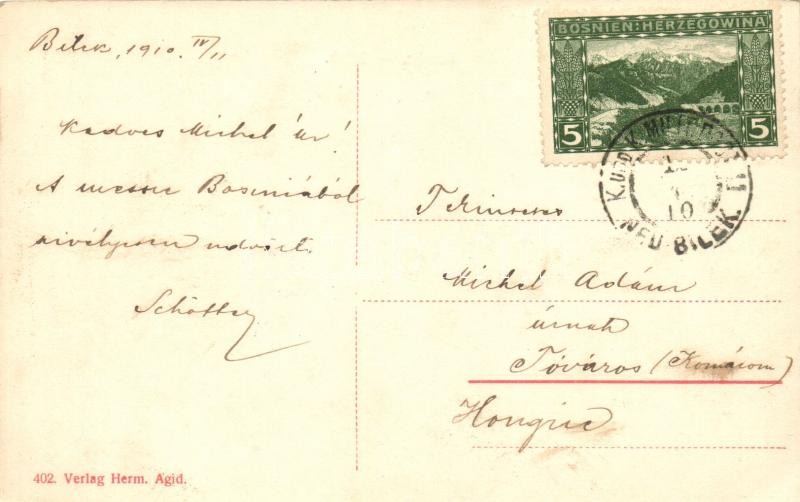 Bilek, 1910. IV/11
Kedves Michel úr!
A messze Boszniából
szívélyesen üdvözli
Schöttsz
BOSNIEN-HERZEGOWINA
5 5
K. UND K. MILIT. POST 11
10
NEU-BILEK
Tekintetes
Michel Ádám
úrnak
Tóváros (Komárom)
Hongrie
402. Verlag Herm. Agid.